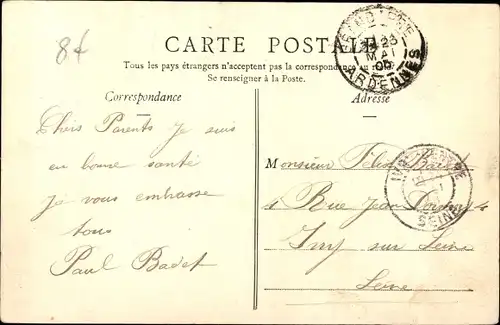 8f
CARTE POSTALE
Tous les pays étrangers n'acceptent pas la correspondance au recto
Se renseigner à la Poste.
Correspondance
Adresse
Chers Parents Je suis
en bonne santé
Je vous embrasse
tous
Paul Badet
Monsieur Félix
Rue Jean
Ivry sur Seine
Seine
23
MAI
ARDENNES
SEINE